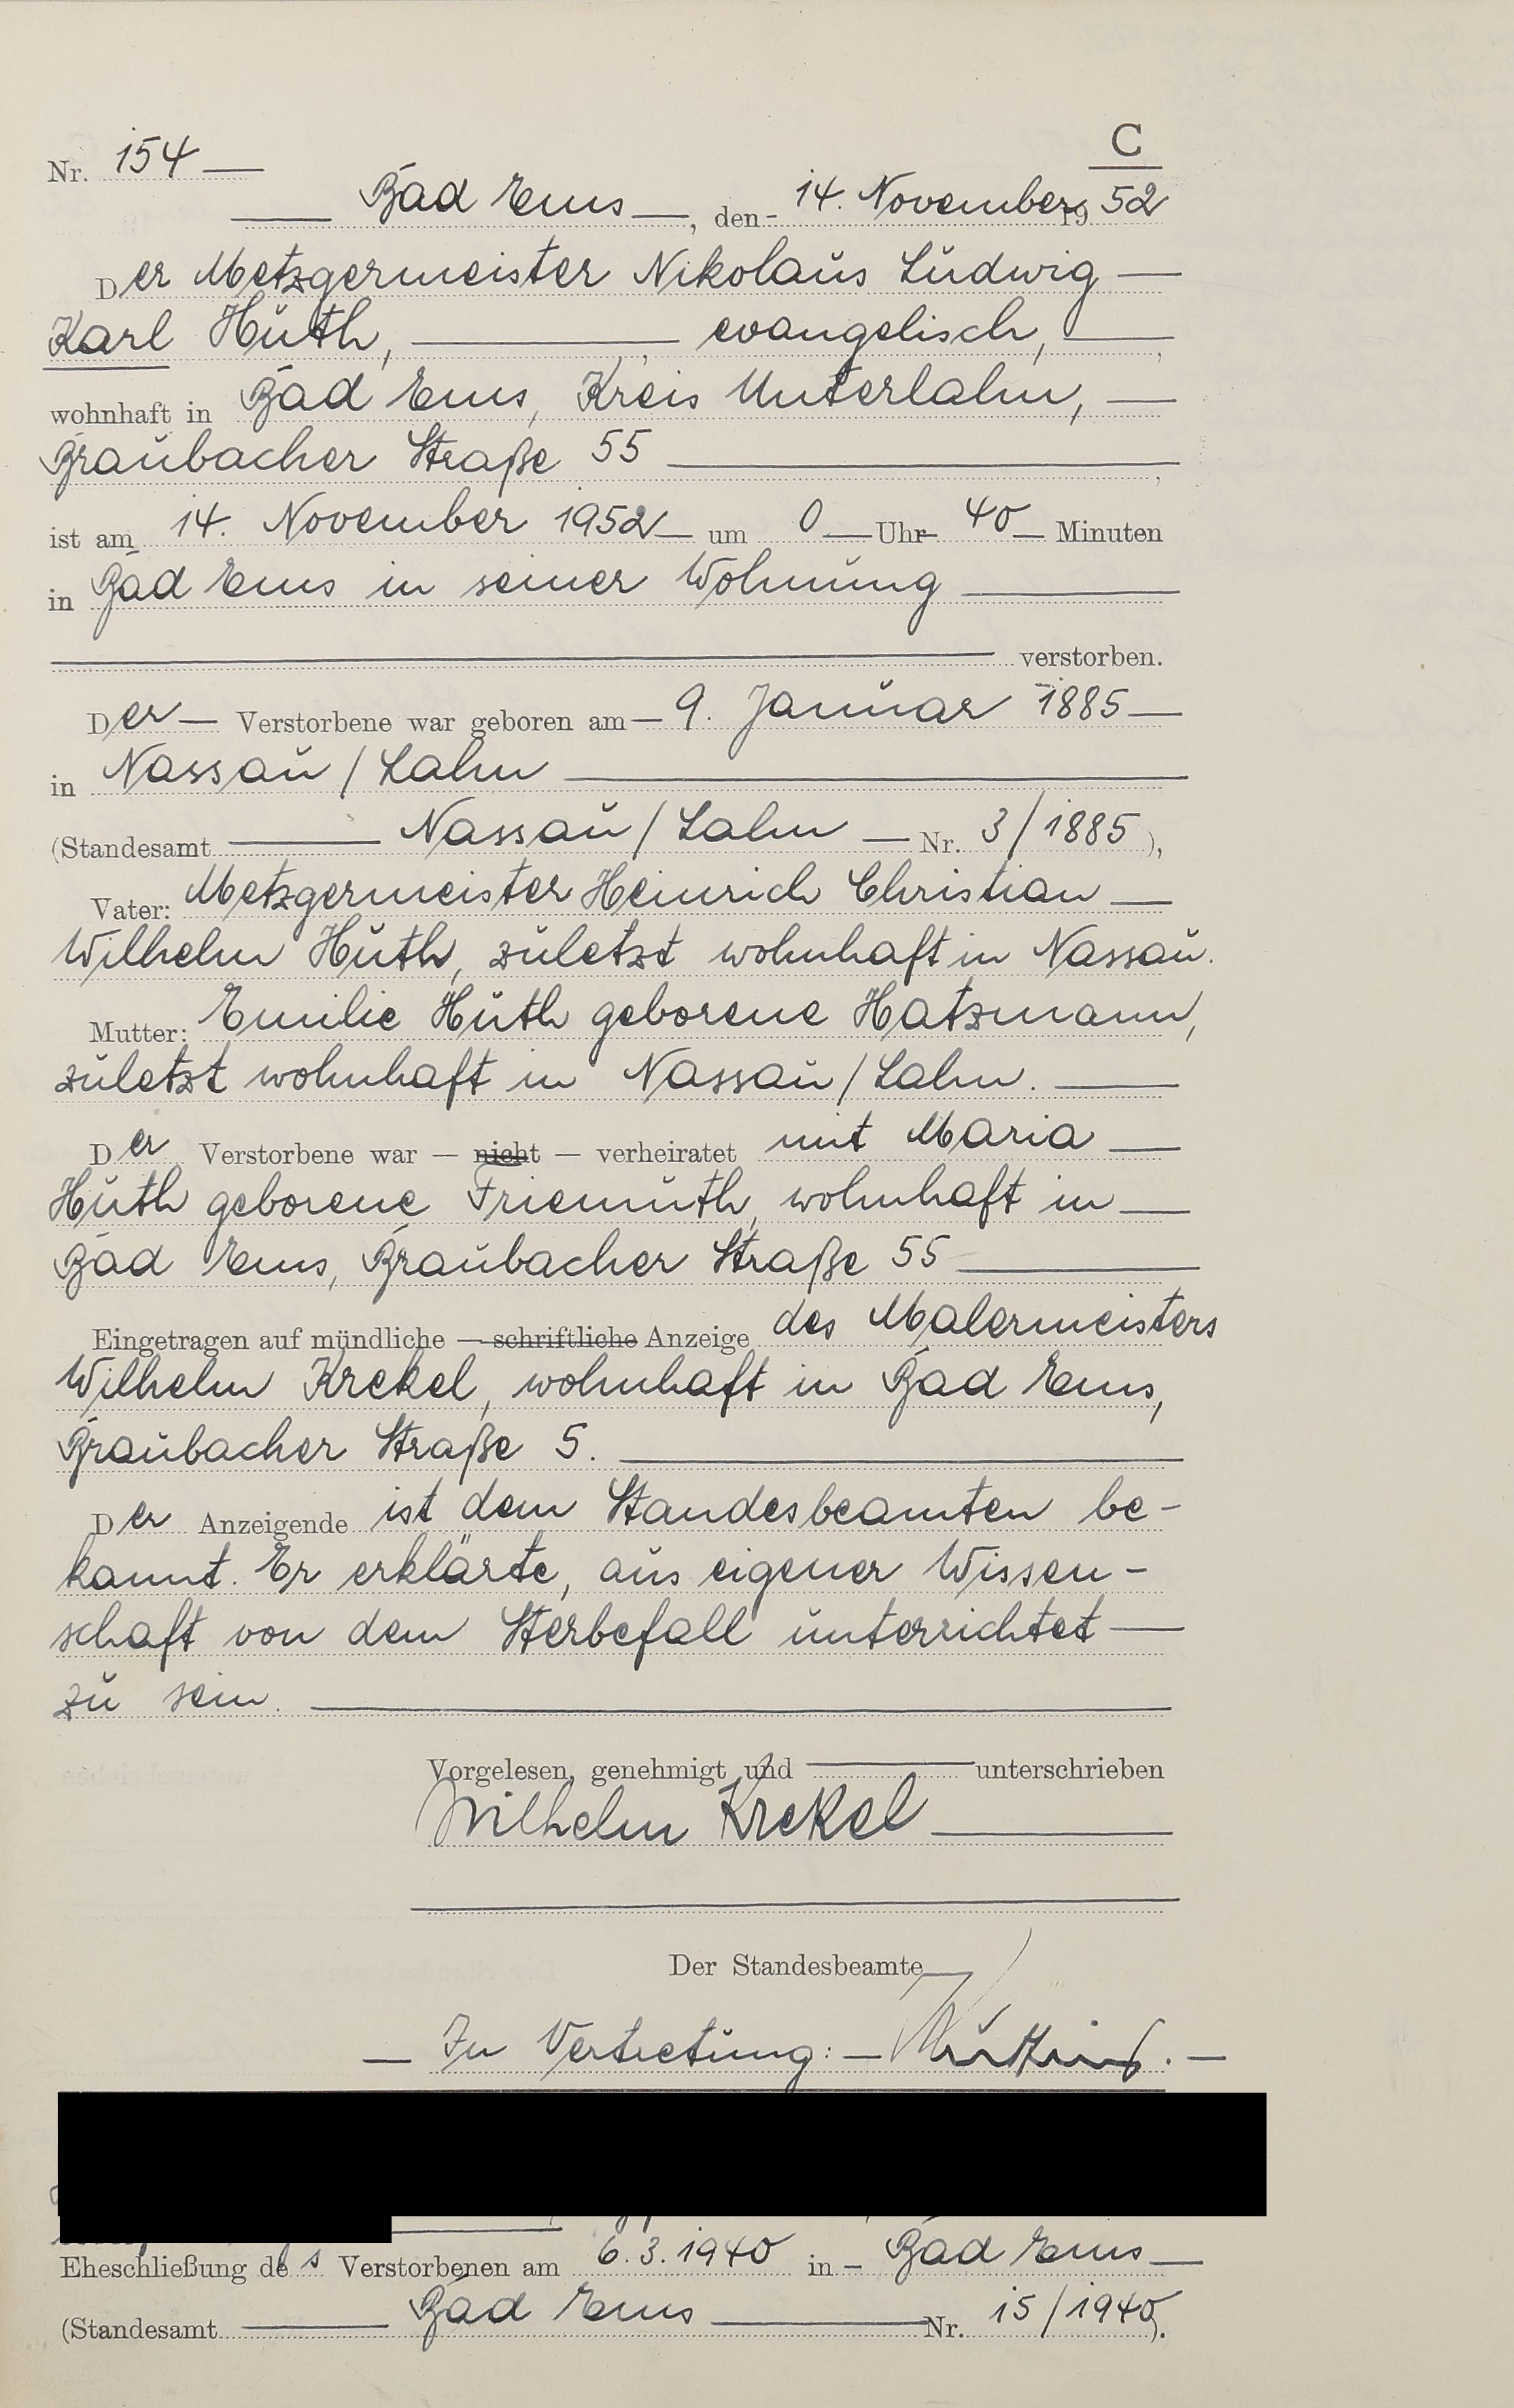 C
Nr. 154
Bad Ems, den 14. November 1952
Der Metzgermeister Nikolaus Ludwig
Karl Huth, evangelisch,
wohnhaft in Bad Ems, Kreis Unterlahn,
Braubacher Straße 55,
ist am 14. November 1952 um 0 Uhr 40 Minuten
in Bad Ems in seiner Wohnung
verstorben.
Der Verstorbene war geboren am 9. Januar 1885
in Nassau/Lahn
(Standesamt Nassau/Lahn Nr. 3/1885),
Vater: Metzgermeister Heinrich Christian
Wilhelm Huth, zuletzt wohnhaft in Nassau.
Mutter: Emilie Huth geborene Hatzmann,
zuletzt wohnhaft in Nassau/Lahn.
Der Verstorbene war — nicht — verheiratet mit Maria
Huth geborene Friemuth, wohnhaft in
Bad Ems, Braubacher Straße 55
Eingetragen auf mündliche — schriftliche Anzeige des Malermeisters
Wilhelm Krekel, wohnhaft in Bad Ems,
Braubacher Straße 5.
Der Anzeigende ist dem Standesbeamten be-
kannt. Er erklärte, aus eigener Wissen-
schaft von dem Sterbefall unterrichtet
zu sein.
Vorgelesen, genehmigt und unterschrieben
Wilhelm Krekel
Der Standesbeamte
In Vertretung:
Eheschließung des Verstorbenen am 6.3.1940 in Bad Ems
(Standesamt Bad Ems Nr. 15/1940).